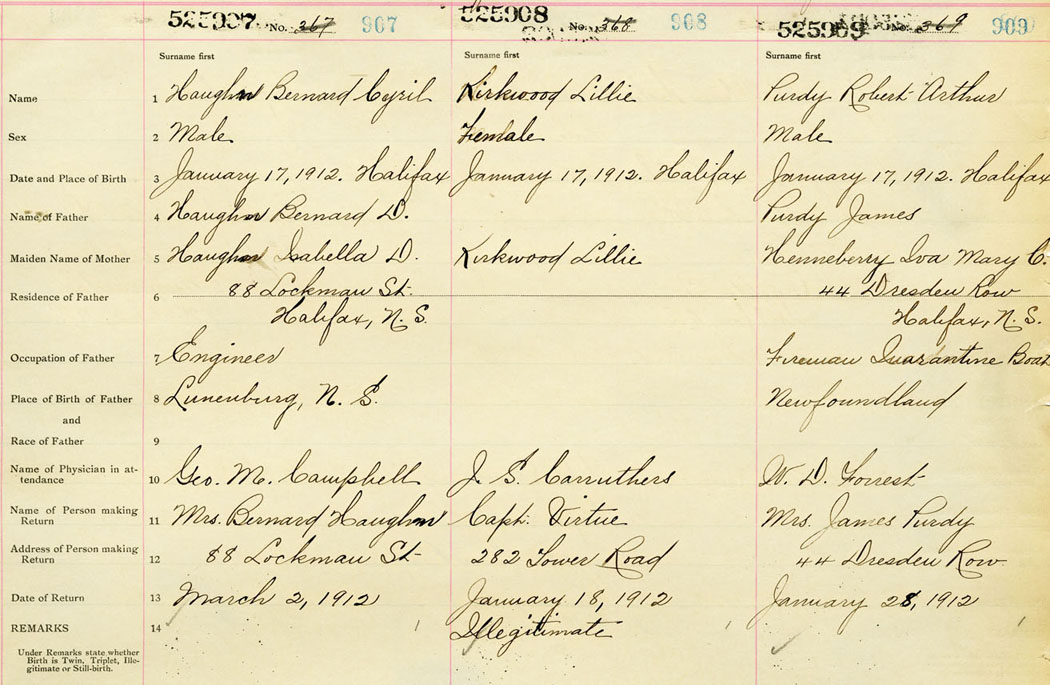 525907 No. 367 907 525908 No. 368 908 525909 No. 369 909
Surname first Surname first Surname first
Name 1 Haughn Bernard Cyril Kirkwood Lillie Purdy Robert Arthur
Sex 2 Male Female Male
Date and Place of Birth 3 January 17, 1912. Halifax January 17, 1912. Halifax January 17, 1912. Halifax
Name of Father 4 Haughn Bernard D. Purdy James
Maiden Name of Mother 5 Haughn Isabella D. Kirkwood Lillie Henneberry Iva Mary C.
Residence of Father 6 88 Lockman St. 44 Dresden Row
Halifax, N. S. Halifax, N. S.
Occupation of Father 7 Engineer Fireman Quarantine Boat
Place of Birth of Father 8 Lunenburg, N. S. Newfoundland
and
Race of Father 9
Name of Physician in at-
tendance 10 Geo. M. Campbell J. S. Carruthers W. D. Forrest
Name of Person making
Return 11 Mrs. Bernard Haughn Capt. Virtue Mrs. James Purdy
Address of Person making
Return 12 88 Lockman St 282 Tower Road 44 Dresden Row
Date of Return 13 March 2, 1912 January 18, 1912 January 28, 1912
REMARKS 14 Illegitimate
Under Remarks state whether
Birth is Twin, Triplet, Ille-
gitimate or Still-birth.